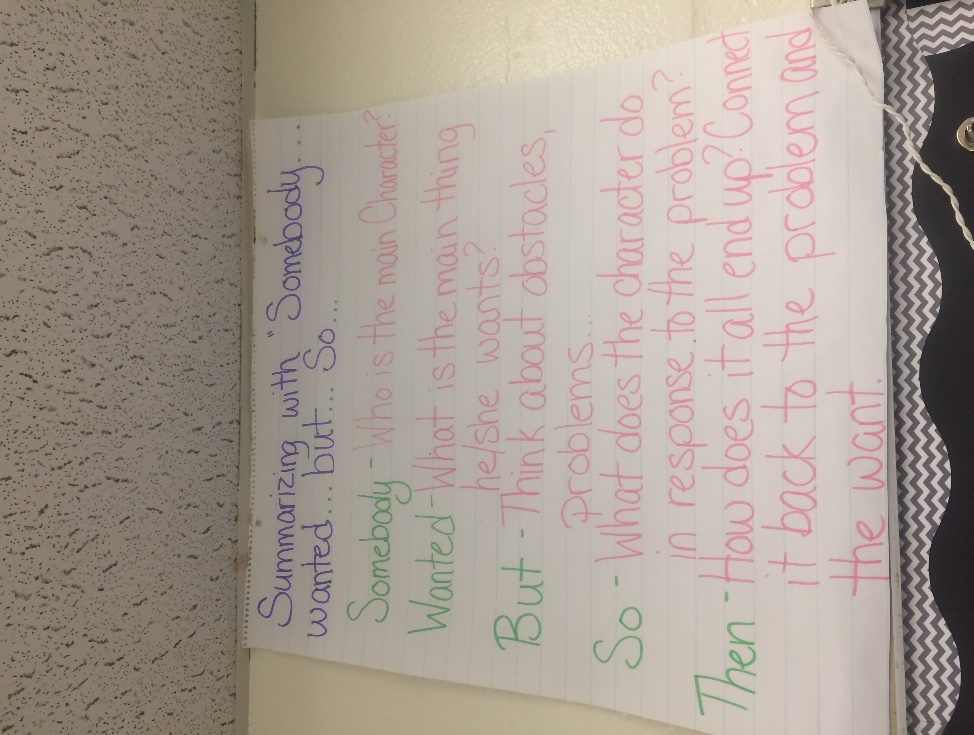 Summarizing with "Somebody...
wanted... but... So...
Somebody - Who is the main Character?
Wanted - What is the main thing
he/she wants?
But - Think about obstacles,
problems...
So - What does the character do
in response to the problem?
Then - How does it all end up? Connect
it back to the problem and
the want.